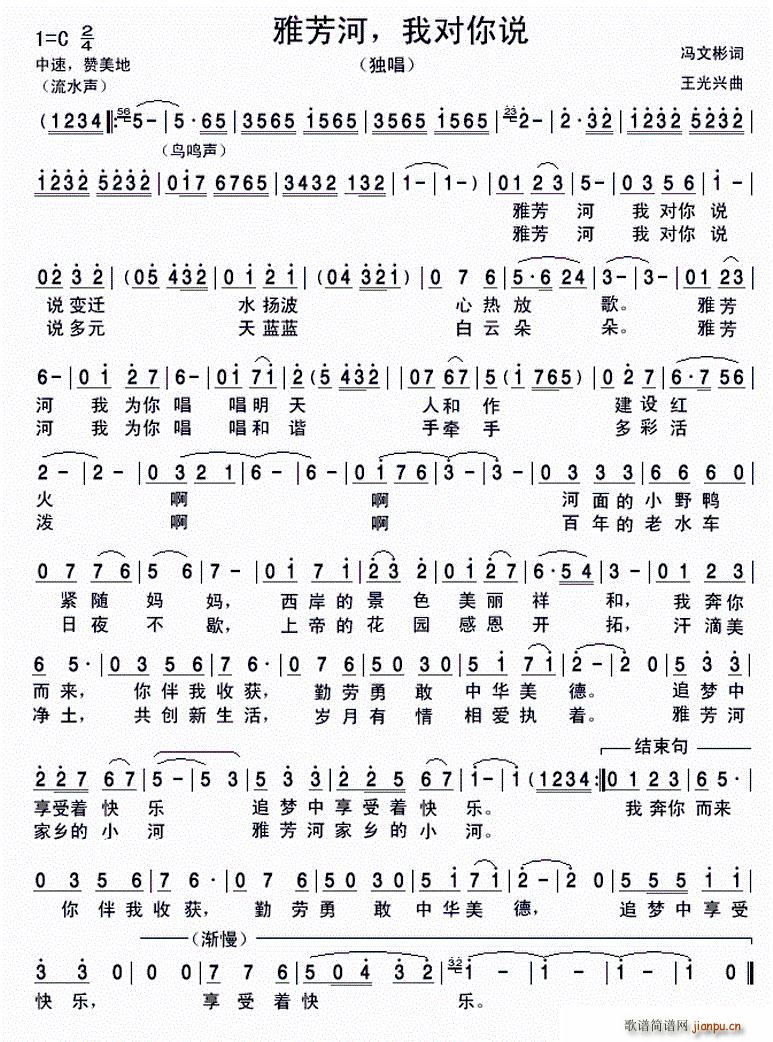 雅芳河，我对你说
1=C 2/4
中速，赞美地
（独唱）
冯文彬词
（流水声）
王光兴曲
( 1 2 3 4 ‖: 56 5 - | 5 · 6 5 | 3 5 6 5 1 5 6 5 | 3 5 6 5 1 5 6 5 | 23 2 - | 2 · 3 2 | 1 2 3 2 5 2 3 2 |
（鸟鸣声）
1 2 3 2 5 2 3 2 | 0 1 7 6 7 6 5 | 3 4 3 2 1 3 2 | 1 - | 1 - ) | 0 1 2 3 | 5 - | 0 3 5 6 | 1 - |
雅芳 河 我 对你 说
雅芳 河 我 对你 说
0 2 3 2 | ( 0 5 4 3 2 | 0 1 2 1 | ( 0 4 3 2 1 ) | 0 7 6 | 5 · 6 2 4 | 3 - | 3 - | 0 1 2 3 |
说变迁 水扬波 心热放 歌。 雅芳
说多元 天蓝蓝 白云朵 朵。 雅芳
6 - | 0 1 2 7 | 6 - | 0 1 7 1 | 2 ( 5 4 3 2 ) | 0 7 6 7 | 5 ( 1 7 6 5 ) | 0 2 7 | 6 · 7 5 6 |
河 我 为你 唱 唱明 天 人和 作 建设红
河 我 为你 唱 唱和 谐 手牵 手 多彩活
2 - | 2 - | 0 3 2 1 | 6 - | 6 - | 0 1 7 6 | 3 - | 3 - | 0 3 3 3 | 6 6 6 0 |
火 啊 啊 河面的小野鸭
泼 啊 啊 百年的老水车
0 7 7 6 | 5 6 | 7 - | 0 1 7 1 | 2 3 2 | 0 1 2 7 | 6 · 5 4 | 3 - | 0 1 2 3 |
紧随妈 妈， 西岸的景色美丽祥 和， 我奔你
日夜不 歇， 上帝的花园感恩开 拓， 汗滴美
6 5 · | 0 3 5 6 | 7 6 · | 0 7 6 7 | 5 0 | 5 1 7 1 | 2 - | 2 0 | 5 3 3 |
而来， 你伴我收获， 勤劳勇 敢 中华美 德。 追梦中
净土， 共创新生活， 岁月有 情 相爱执 着。 雅芳河
结束句
2 2 7 6 7 | 5 - | 5 3 | 5 3 3 | 2 2 5 6 7 | 1 - | 1 ( 1 2 3 4 :‖ 0 1 2 3 | 6 5 · |
享受着快 乐 追梦中享受着快 乐。 我奔你而来
家乡的小 河 雅芳河家乡的小 河。
0 3 5 6 | 7 6 · | 0 7 6 7 | 5 0 | 5 1 7 1 | 2 - | 2 0 | 5 5 5 1 1 |
你伴我收获， 勤劳勇 敢 中华美 德， 追梦中享受
（渐慢）
3 3 0 | 0 0 | 7 7 6 | 5 0 4 3 2 | 32 1 - | 1 - | 1 - | 1 0 ‖
快乐， 享受着快 乐。
歌谱简谱网
jianpu.cn